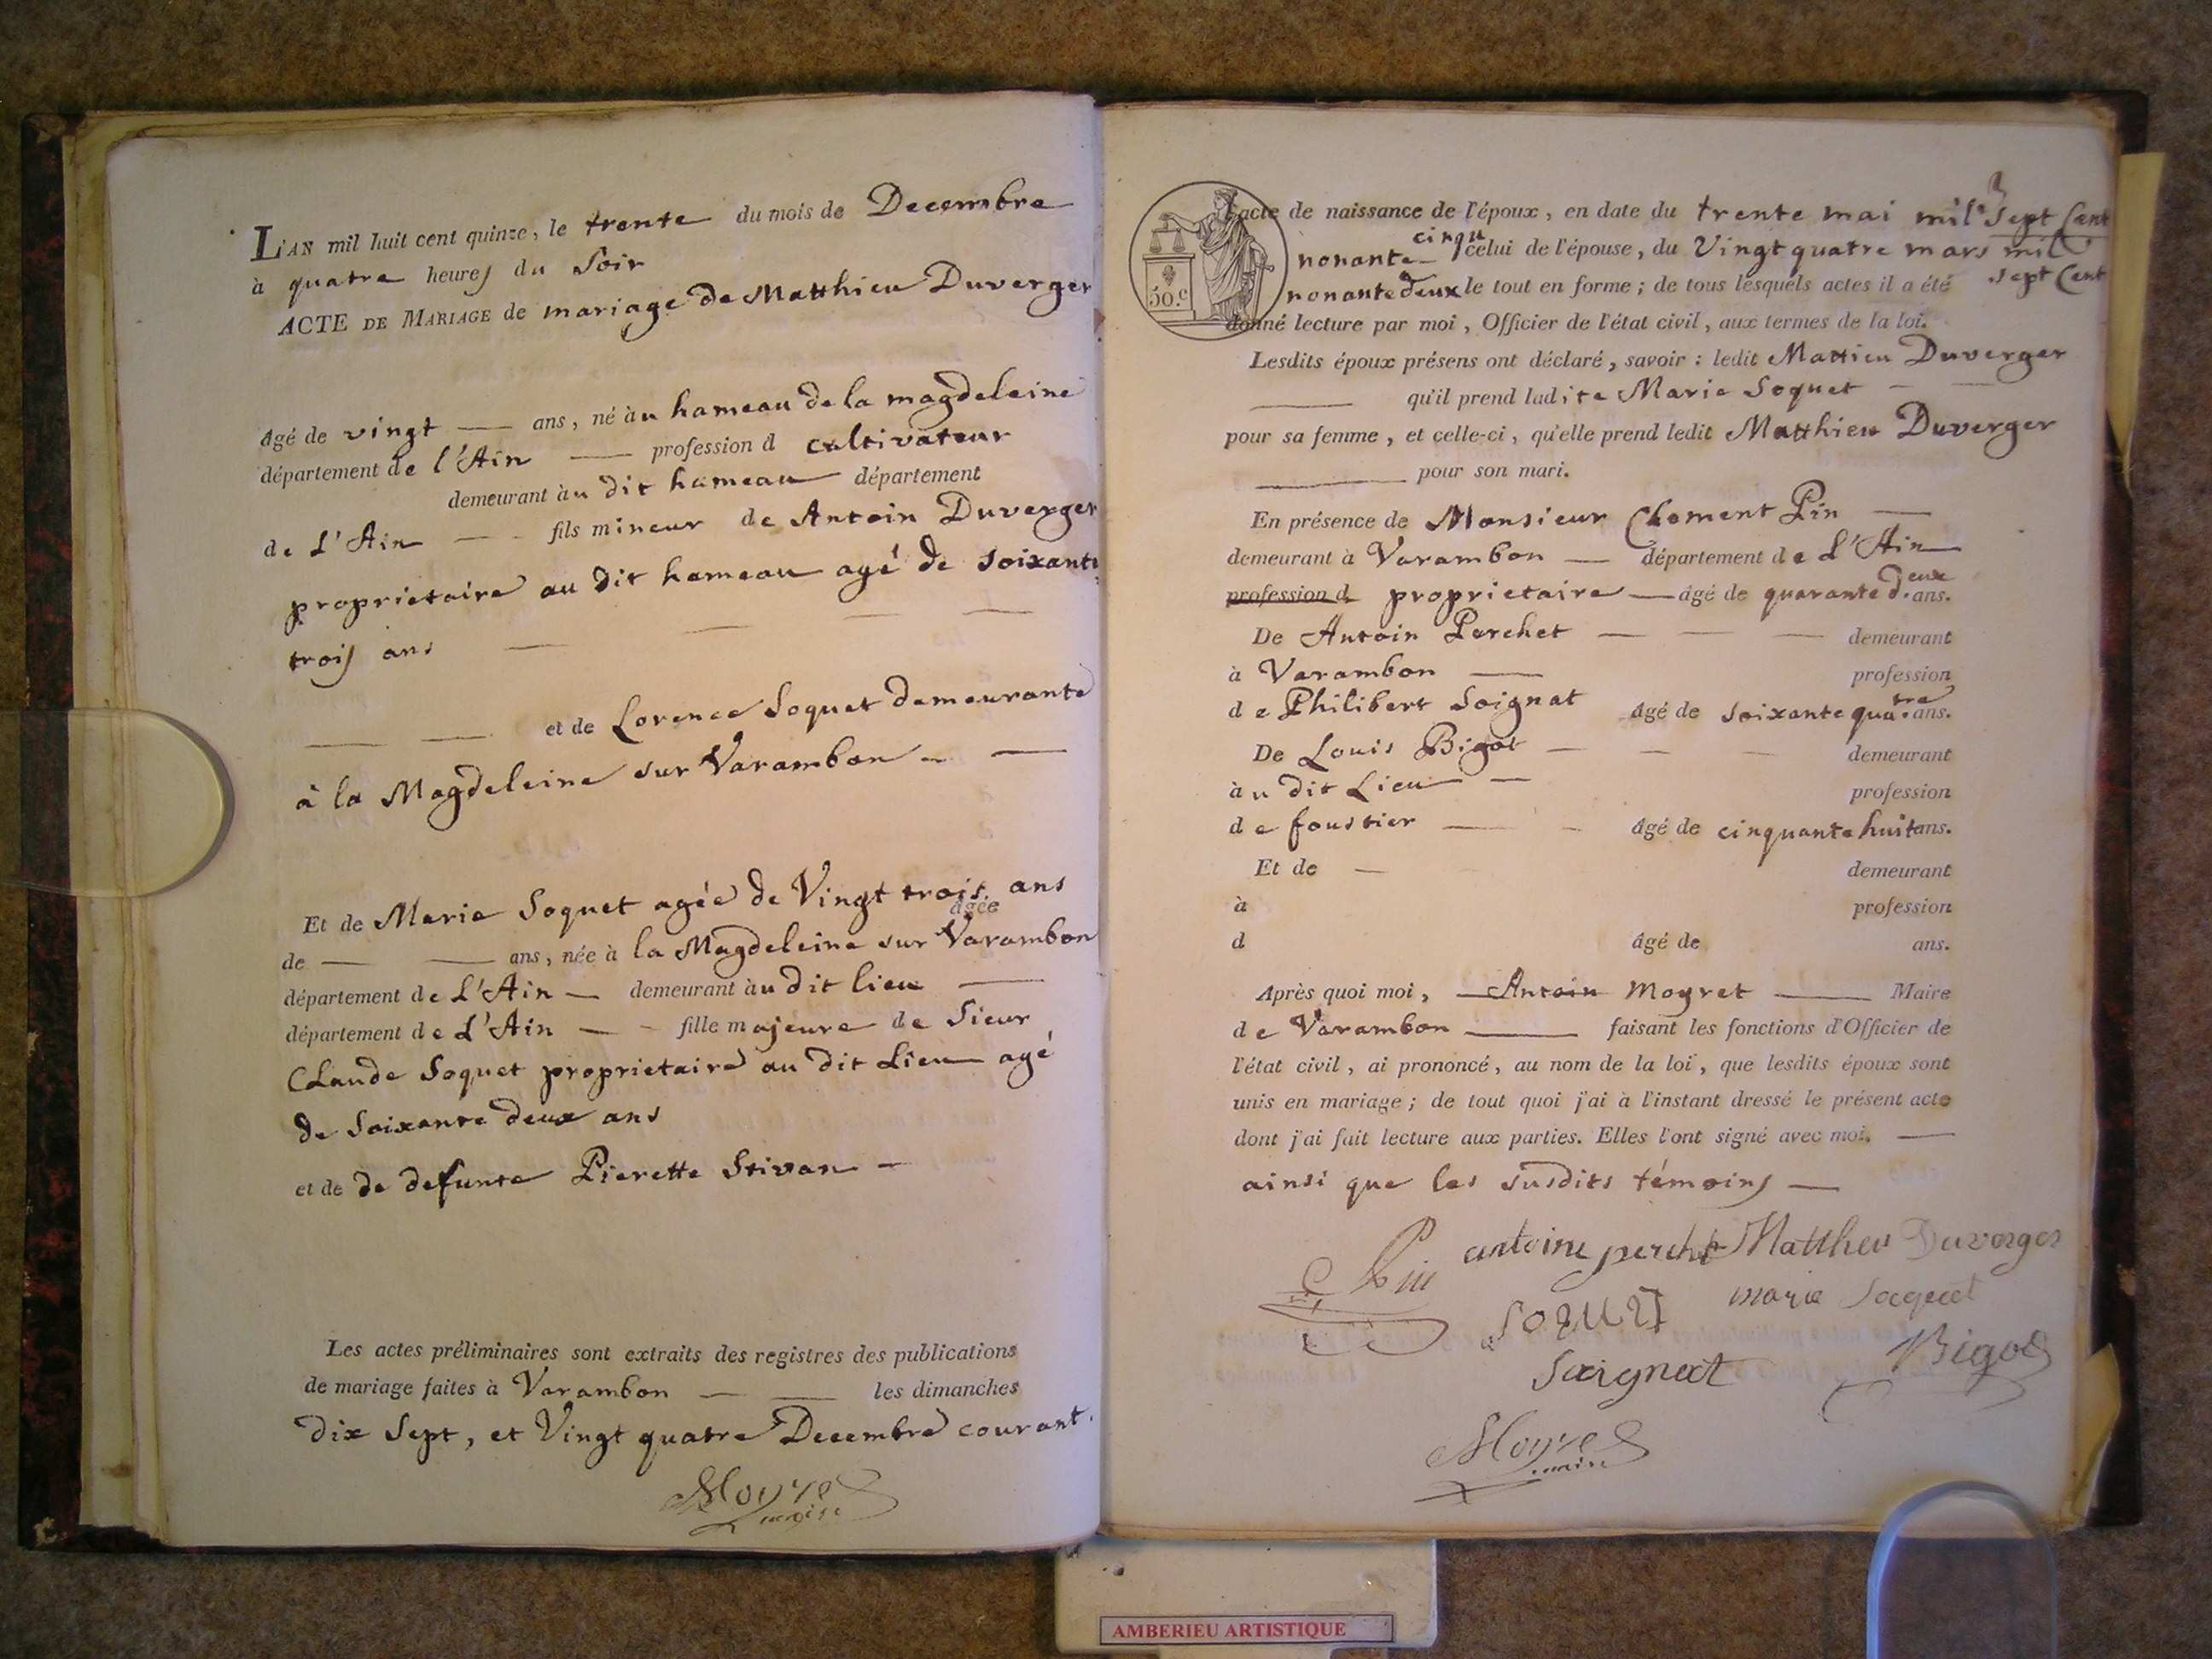 L'AN mil huit cent quinze, le trente du mois de Decembre
à quatre heures du Soir
ACTE DE MARIAGE de mariage de Matthieu Duverger
âgé de vingt — ans, né àu hameau de la magdeleine
département de l'Ain — profession d cultivateur
demeurant àu dit hameau département
de L'Ain — fils mineur de Antoin Duverger
proprietaire au dit hameau agé de soixante
trois ans — — — —
— — et de Lorence Soquet demeurante
à la Magdeleine sur Varambon — —
Et de Marie Soquet agée de Vingt trois ans
âgée
de — — ans, née à la Magdeleine sur Varambon
département de L'Ain — demeurant àu dit lieu —
département de L'Ain — - fille majeure de Sieur
Claude Soquet proprietaire au dit Lieu agé
de Soixante deux ans
et de de defunte Pierette Stivan —
Les actes préliminaires sont extraits des registres des publications
de mariage faites à Varambon — — les dimanches
dix sept, et Vingt quatre Decembre courant.
Moyret
maire
l'acte de naissance de l'époux, en date du trente mai mil sept Cent
nonante cinq celui de l'épouse, du Vingt quatre mars mil
sept Cent
nonante deux le tout en forme; de tous lesquels actes il a été
50.c
donné lecture par moi, Officier de l'état civil, aux termes de la loi.
Lesdits époux présens ont déclaré, savoir : ledit Mattieu Duverger
— qu'il prend ladite Marie Soquet —
pour sa femme, et celle-ci, qu'elle prend ledit Matthieu Duverger
— pour son mari.
En présence de Monsieur Clement Pin —
demeurant à Varambon — département de L'Ain
profession d proprietaire — âgé de quarante deux ans.
De Antoin Perchet — — — demeurant
à Varambon — profession
de Philibert Soignat âgé de soixante quatre ans.
De Louis Bigot — — — demeurant
àu dit Lieu — profession
de foustier — - âgé de cinquante huit ans.
Et de — demeurant
à profession
d âgé de ans.
Après quoi moi, — Antoin Moyret — Maire
de Varambon — faisant les fonctions d'Officier de
l'état civil, ai prononcé, au nom de la loi, que lesdits époux sont
unis en mariage; de tout quoi j'ai à l'instant dressé le présent acte
dont j'ai fait lecture aux parties. Elles l'ont signé avec moi, —
ainsi que les susdits témoins —
C Pin antoine perchet Matthieu Duverger
SOQUET marie Soquet
Soignat Bigot
Moyret
maire
AMBERIEU ARTISTIQUE